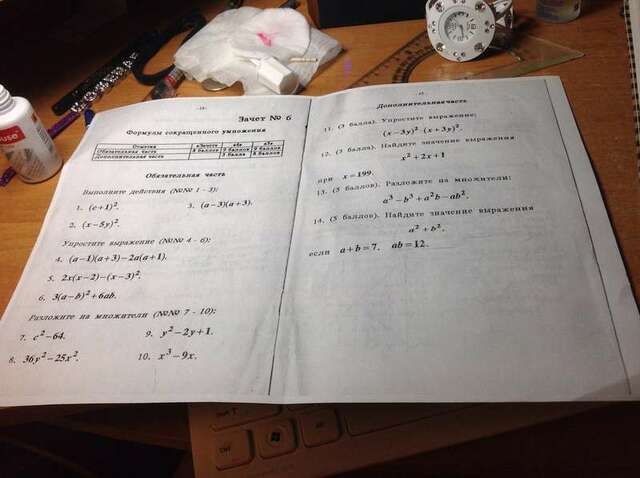 Зачет № 6
Формулы сокращенного умножения
Отметка «Зачет» «4» «5»
Обязательная часть
Дополнительная часть 3 балла
Обязательная часть
Выполните действия (№№ 1 - 3):
1. (c+1)².
3. (a−3)(a+3).
2. (x−5y)².
Упростите выражение (№№ 4 - 6):
4. (a−1)(a+3)−2a(a+1).
5. 2x(x−2)−(x−3)².
6. 3(a−b)²+6ab.
Разложите на множители (№№ 7 - 10):
7. c²−64.
9. y²−2y+1.
8. 36y²−25x².
10. x³−9x.
Дополнительная часть
11. (3 балла). Упростите выражение:
(x−3y)² (x+3y)².
12. (3 балла). Найдите значение выражения
x²+2x+1
при x=199.
13. (5 баллов). Разложите на множители:
a³−b³+a²b−ab².
14. (5 баллов). Найдите значение выражения
a²+b².
если a+b=7. ab=12.
ouse
Ctrl
Alt